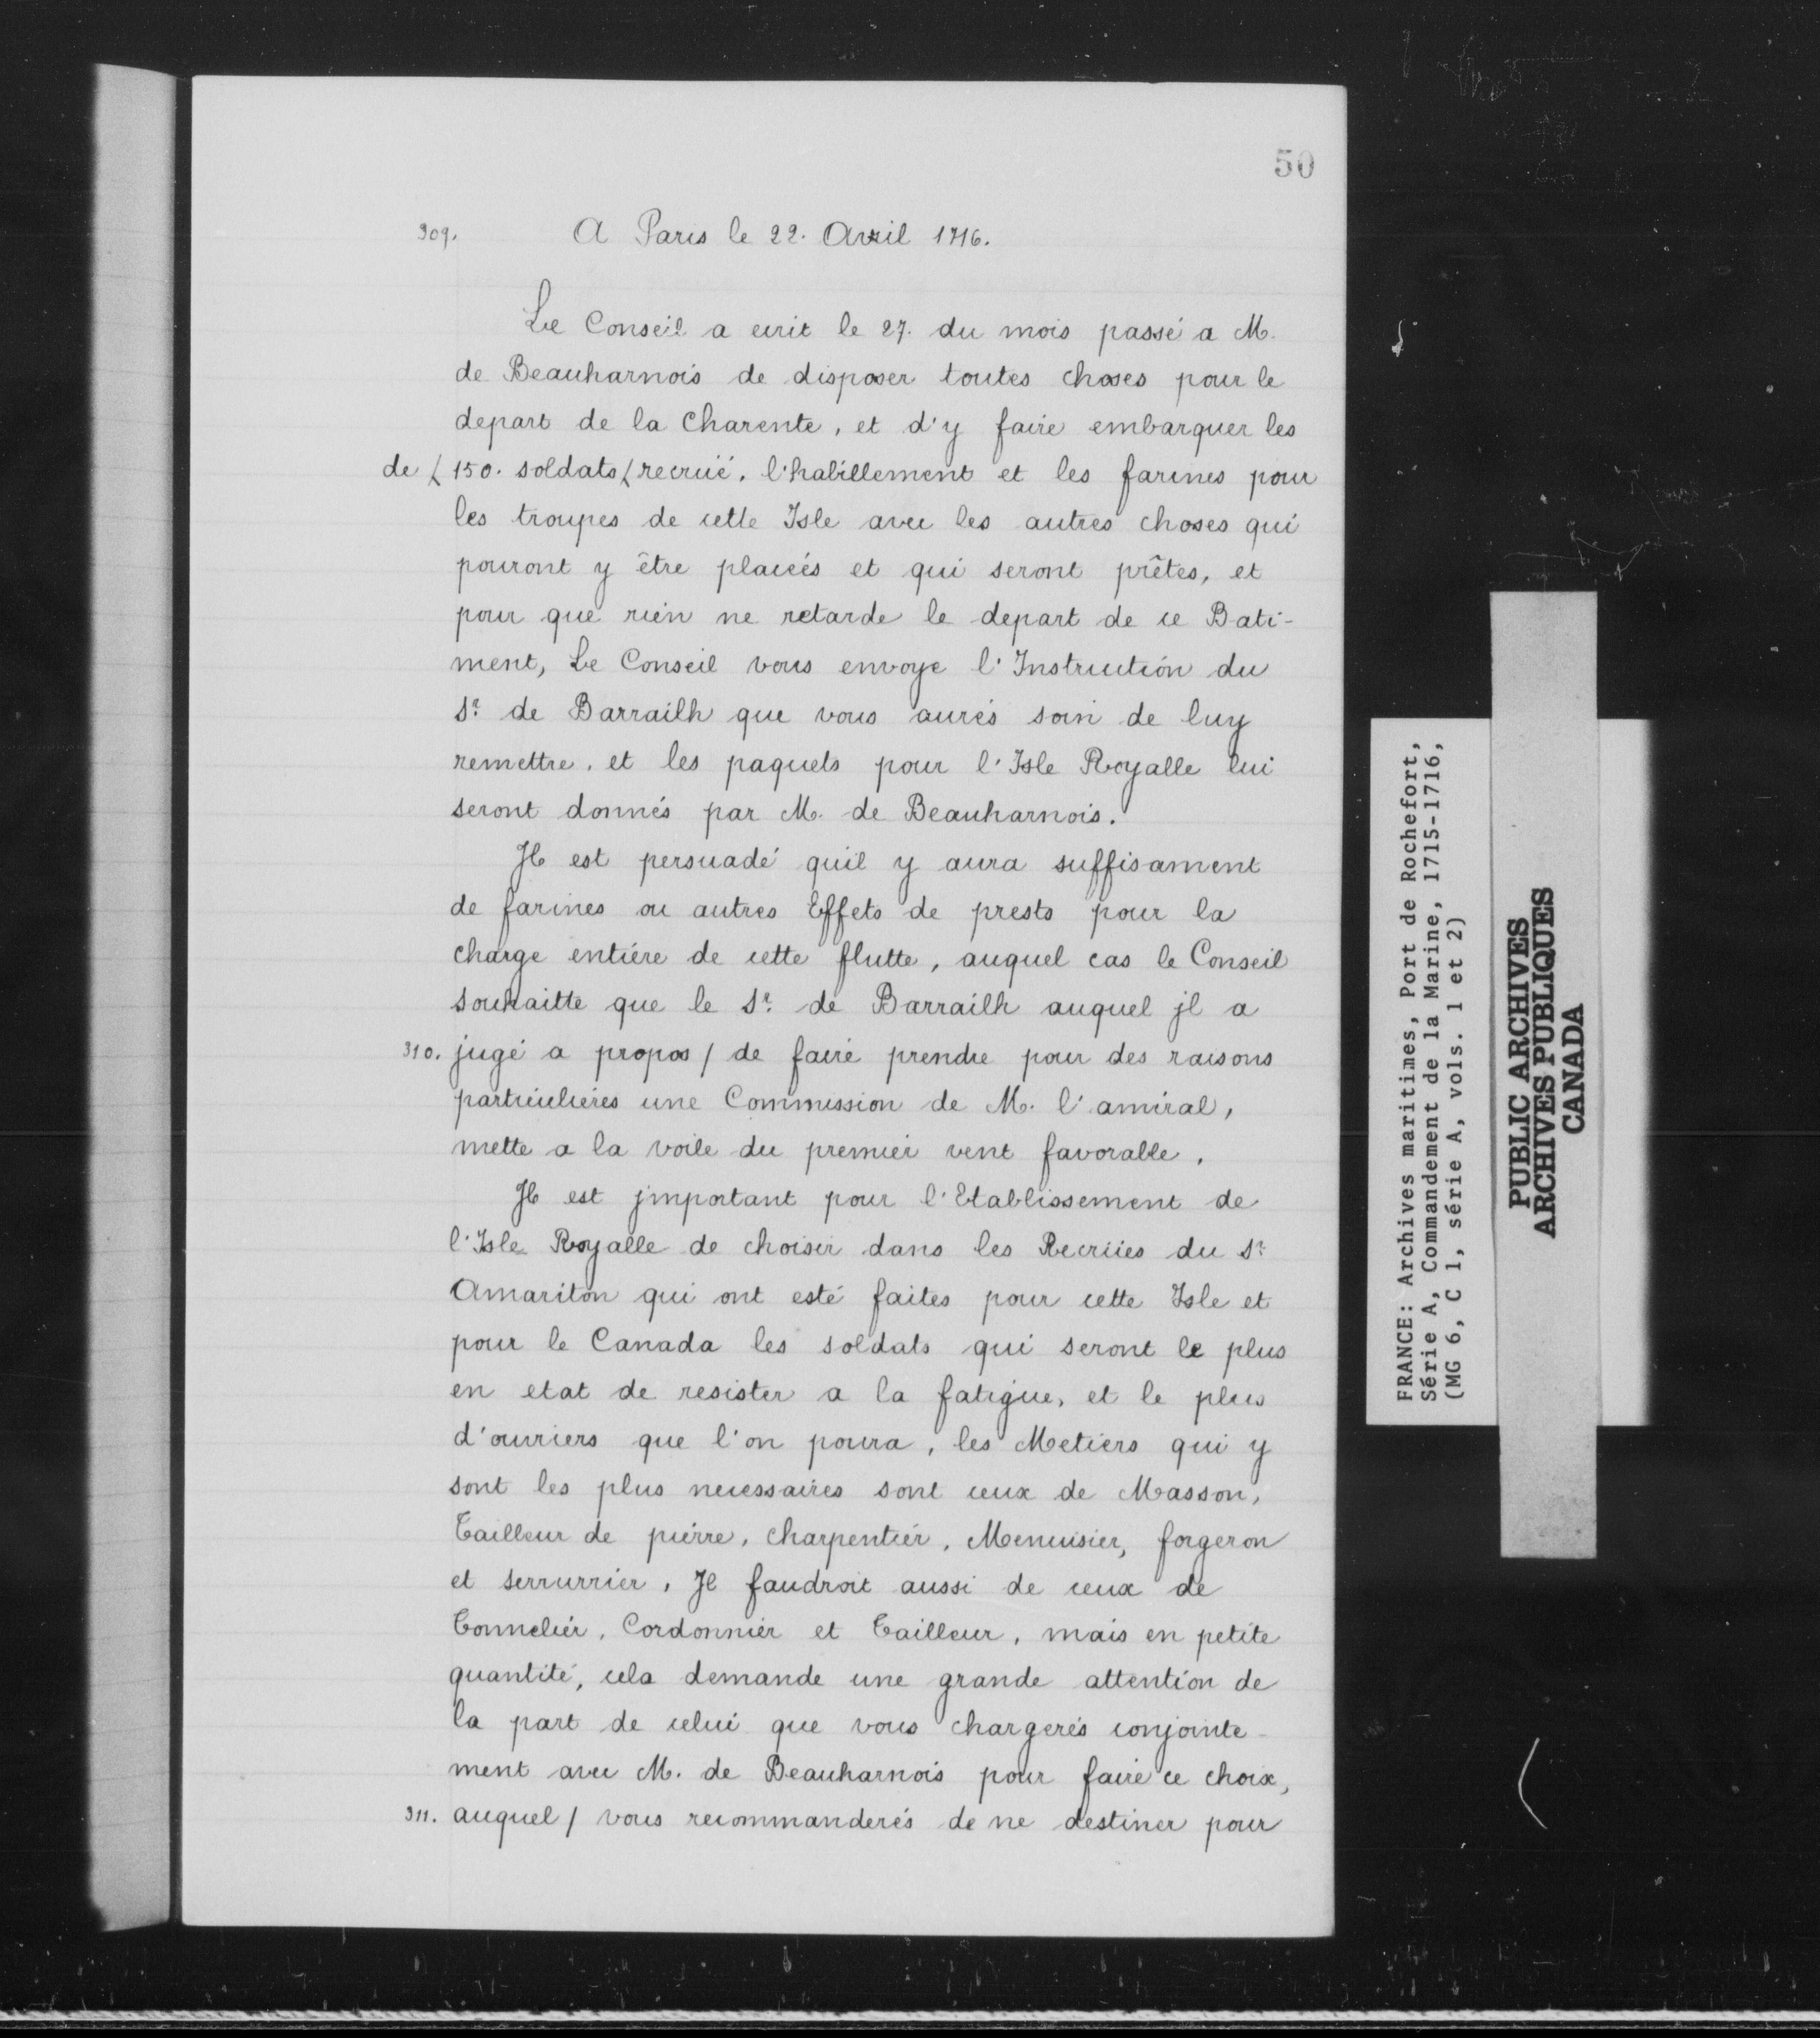 50
309. A Paris le 22. Avril 1716.
Le Conseil a ecrit le 27. du mois passé a M.
de Beauharnois de disposer toutes choses pour le
depart de la Charente, et d'y faire embarquer les
de / 150. soldats / recruë, l'habillement et les farines pour
les troupes de cette Isle avec les autres choses qui
pouront y être placées et qui seront prêtes, et
pour que rien ne retarde le depart de ce Bati-
ment, Le Conseil vous envoye l'Instruction du
Sr. de Barrailh que vous aurés soin de luy
remettre, et les paquets pour l'Isle Royalle lui
seront donnés par M. de Beauharnois.
Jl est persuadé quil y aura suffisament
de farines ou autres Effets de prests pour la
charge entiére de cette flutte, auquel cas le Conseil
souhaitte que le Sr. de Barrailh auquel jl a
310. jugé a propos / de faire prendre pour des raisons
particulieres une Commission de M. l'amiral,
mette a la voile du premier vent favorable.
Jl est jmportant pour l'Etablissement de
l'Isle Royalle de choisir dans les Recruës du Sr.
Amariton qui ont esté faites pour cette Isle et
pour le Canada les soldats qui seront le plus
en etat de resister a la fatigue, et le plus
d'ouvriers que l'on poura, les Metiers qui y
sont les plus necessaires sont ceux de Masson,
Tailleur de pierre, Charpentier, Menuisier, forgeron
et serrurrier, Jl faudroit aussi de ceux de
Tonnelier, Cordonnier et Tailleur, mais en petite
quantité, cela demande une grande attention de
la part de celui que vous chargerés conjointe-
ment avec M. de Beauharnois pour faire ce choix,
311. auquel / vous recommanderés de ne destiner pour
FRANCE: Archives maritimes, Port de Rochefort,
Série A, Commandement de la Marine, 1715-1716,
(MG 6, C 1, série A, vols. 1 et 2)
PUBLIC ARCHIVES
ARCHIVES PUBLIQUES
CANADA